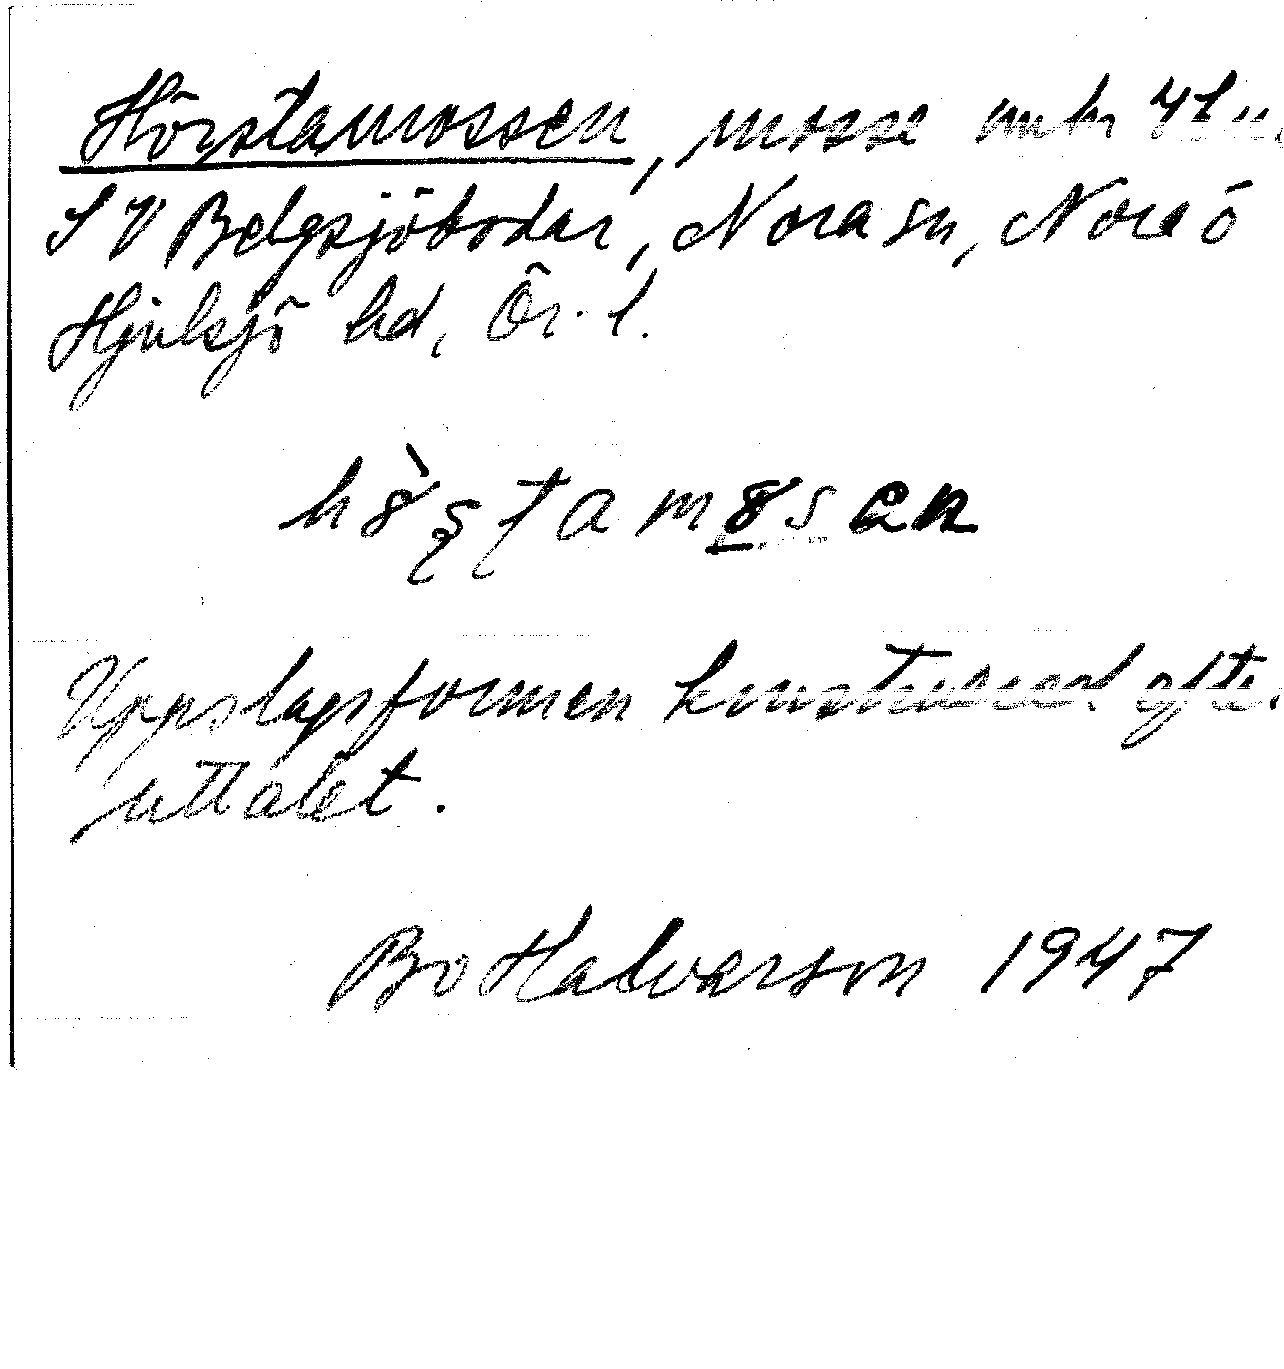 Hörstamossen, mosse
SV Belgsjöbodar, Nora sn, Nora o
Hjulsjö hd, Ör. l.
Uppslagsformen konstruerad efter
uttalet.
Bo Halvarson 1947